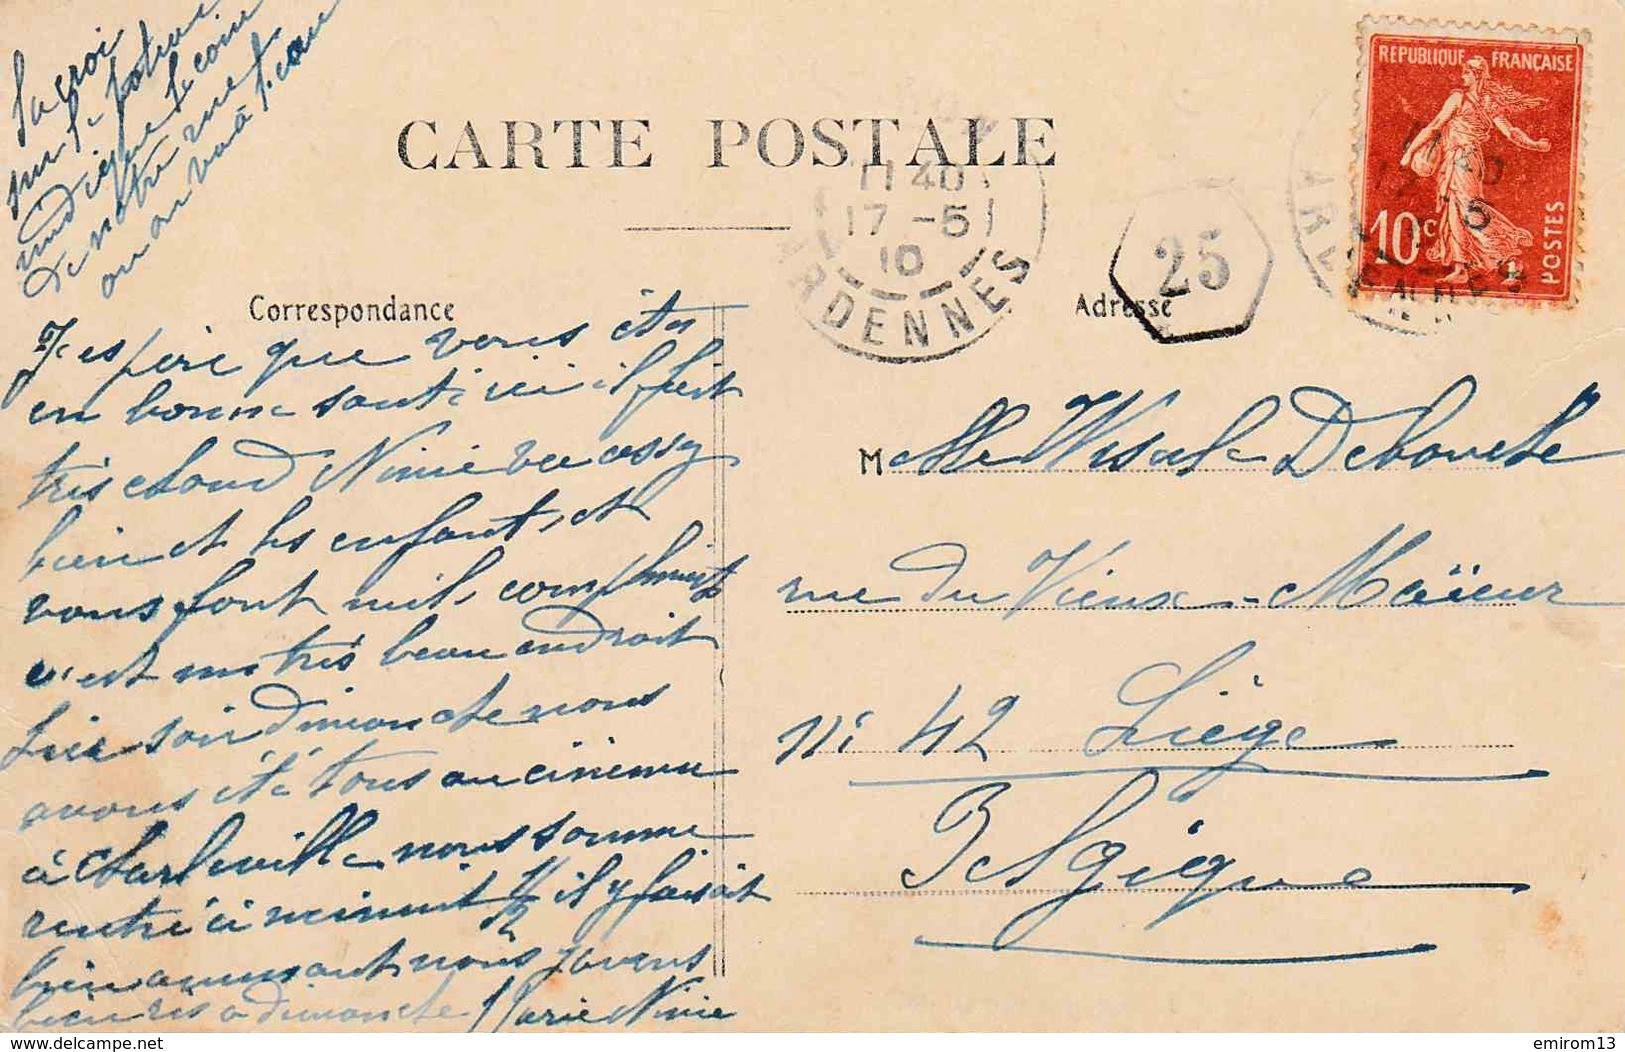 la croi
sur le poteau
indique le coin
de notre rue
ou on va à
CARTE POSTALE
REPUBLIQUE FRANÇAISE
10c
POSTES
11 40
17 -5
10
ARDENNES
25
Correspondance
Adresse
J'espère que vous êtes
en bonne santé ici il fait
très chaud Ninie va assez
bien et les enfants et
vous font mil compliments
c'est un très beau endroit
hier soir dimanche nous
avons été tous au cinéma
à Charleville nous somme
rentré à minuit 1/2 il y faisait
bien amusant nous y avons
bien ris a dimanche Marie Ninie
Melle Debouche
rue du Vieux-Maïeur
N° 42 Liège
Belgique
delcampe.net
emirom13